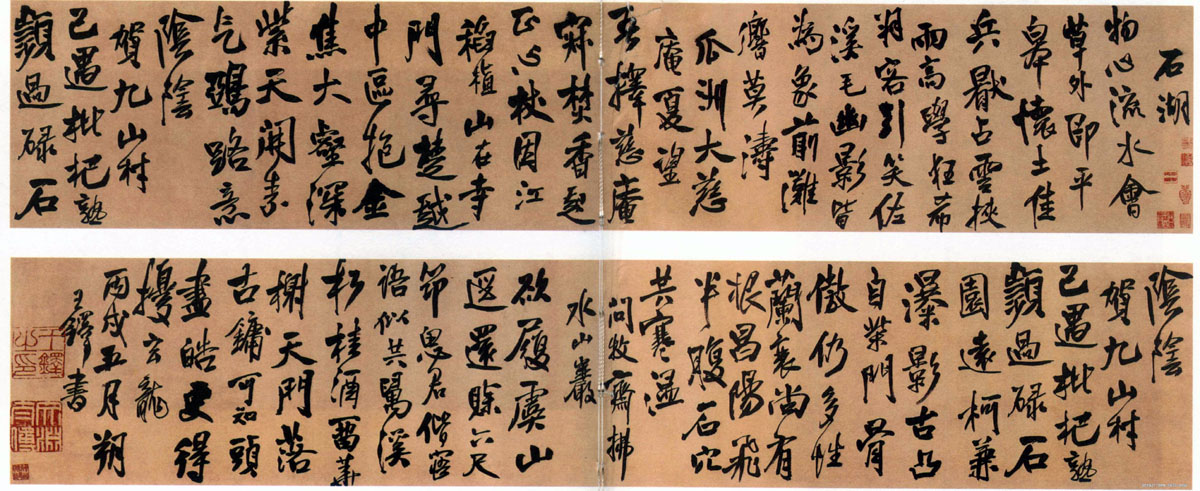 石湖
物心流水會
草外即平
皋本懷土佳
兵占雲挾
雨高學狂
羽客引笑佐
溪毛幽影皆
為象前灘
響莫濤
瓜洲大慈
庵夏望
擇慈庵
寐焚香起
正心杖因江
稻植山在寺
門尋楚越
中區抱金
焦大壑深
柴天開素
气鷄路意
陰陰
賀九山村
已過枇杷熟
顥過碌石
陰陰
賀九山村
已過枇杷熟
顥過碌石
園遠柯兼
瀑影古凸
自柴門胥
傲仍多性
蘭衰尚有
根昌陽飛
半腹石穴
共寒溫
問牧齋拂
水山巖
欲履虞山
遐還賒六尺
節思君偕寤
語似共鷗溪
杉桂酒西華
榭天門落
古鏞可知頭
畫皓更得
擾玄龍
丙戌五月朔
王鐸書
王鐸之印